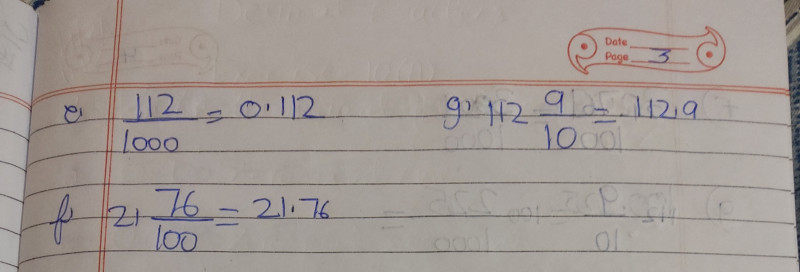 Date
Page 3
e. 112/1000 = 0.112
g. 112 9/10 = 112.9
f. 21 76/100 = 21.76